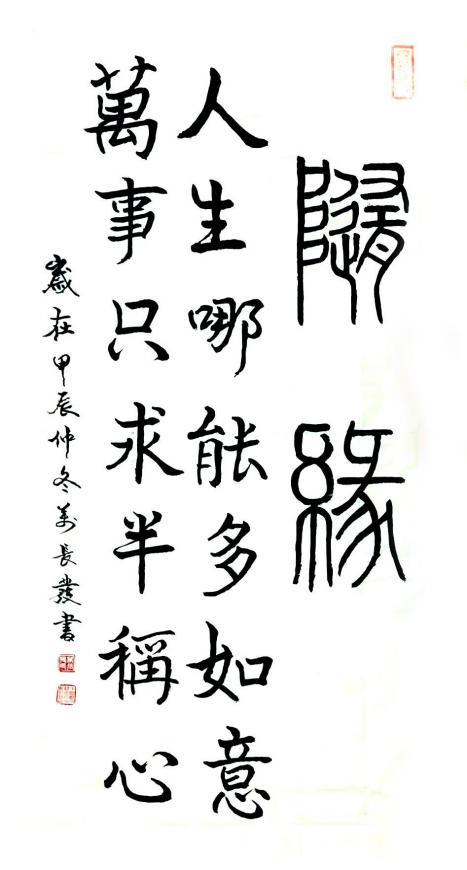 隨緣
人生哪能多如意
萬事只求半稱心
歲在甲辰仲冬萬長發書